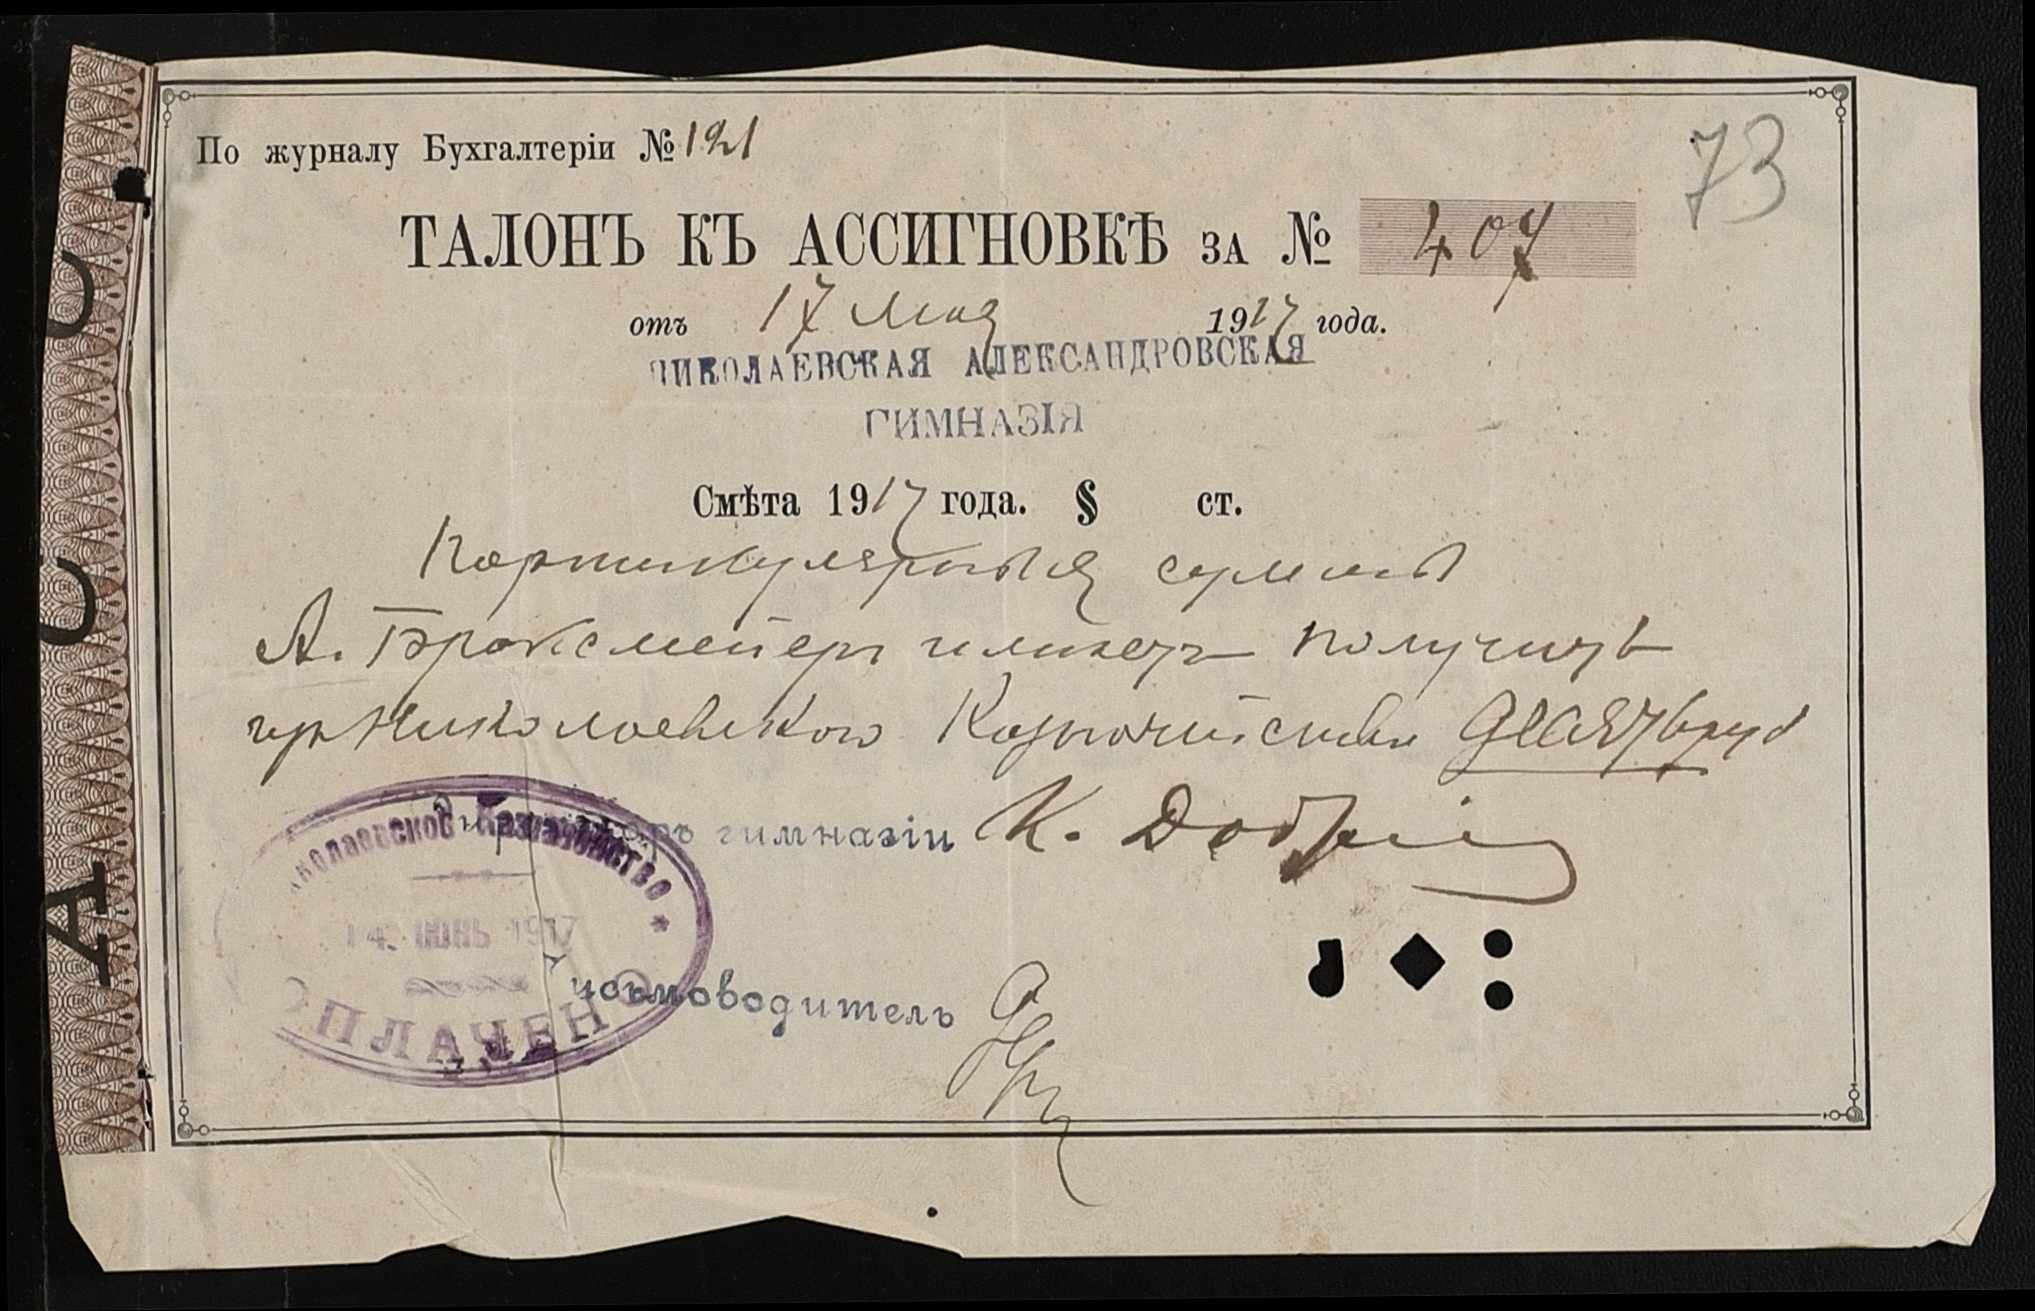 73
По журналу Бухгалтеріи № 121
ТАЛОНЪ КЪ АССИГНОВКѢ ЗА № 407
отъ 17 Мая 1917 года.
НИКОЛАЕВСКАЯ АЛЕКСАНДРОВСКАЯ
ГИМНАЗІЯ
Смѣта 1917 года. § ст.
Партикулярныя суммы
А. Броксмейеръ имѣетъ получить
изъ Николаевского Казначейства девять руб
Директоръ гимназіи К. Добр
Николаевское Казначейство *
14 ІЮНЬ 1917
ОПЛАЧЕНО
Письмоводитель
А С С